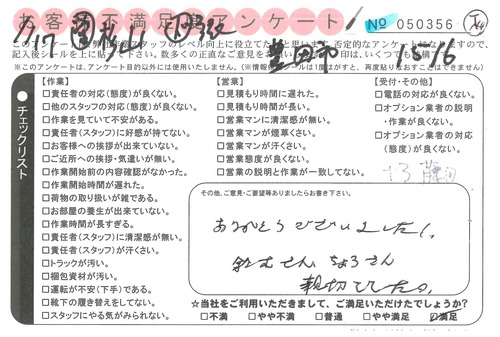 お客様不満足度アンケート
No 050356
7/17
豊田市
1816
このアンケートは弊社
スタッフのレベル向上に役立てたいと思います。否定的なアンケートになりますので、
記入後シールを上に貼って下さい。
※このアンケートは、アンケート目的以外には使用いたしません。(※情報保護シールは1度はがすと、再度貼りなおすことはできません)
チェックリスト
【作業】
□責任者の対応(態度)が良くない。
□他のスタッフの対応(態度)が良くない。
□作業を見ていて不安がある。
□責任者(スタッフ)に好感が持てない。
□お客様への挨拶が出来ていない。
□ご近所への挨拶・気遣いが無い。
□作業開始前の内容確認がなかった。
□作業開始時間が遅れた。
□荷物の取り扱いが雑である。
□お部屋の養生が出来ていない。
□作業時間が長すぎる。
□責任者(スタッフ)に清潔感が無い。
□責任者(スタッフ)が汗くさい。
□トラックが汚い。
□梱包資材が汚い。
□運転が不安(下手)である。
□靴下の履き替えをしてない。
□スタッフにやる気がみられない。
【営業】
□見積もり時間に遅れた。
□見積もり時間が長い。
□営業マンに清潔感が無い。
□営業マンが煙草くさい。
□営業マンが汗くさい。
□営業態度が良くない。
□営業の説明と作業が一致してない。
【受付・その他】
□電話の対応が良くない。
□オプション業者の説明
・作業が良くない。
□オプション業者の対応
(態度)が良くない。
その他、ご意見・ご要望等ありましたらお書き下さい。
ありがとうございました!
親切でした。
☆当社をご利用いただきまして、ご満足いただけたでしょうか?
□不満 □やや不満 □普通 □やや満足 ☑満足